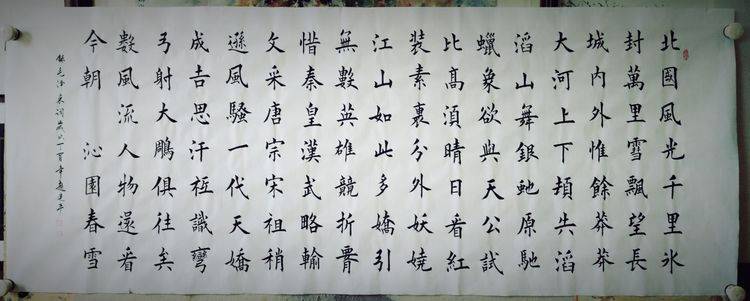 北國風光千里冰
封萬里雪飄望長
城内外惟餘莽莽
大河上下頓失滔
滔山舞銀虵原馳
蠟象欲與天公試
比高須晴日看紅
裝素裹分外妖嬈
江山如此多嬌引
無數英雄競折腰
惜秦皇漢武略輸
文采唐宗宋祖稍
遜風騷一代天嬌
成吉思汗祗識彎
弓射大鵬俱往矣
數風流人物還看
今朝 沁園春雪
錄毛澤東詞歲次丁酉年